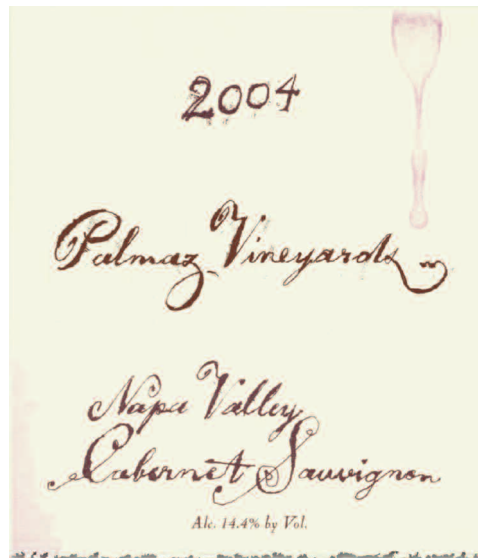 2004
Palmaz Vineyards
Napa Valley
Cabernet Sauvignon
Alc. 14.4% by Vol.